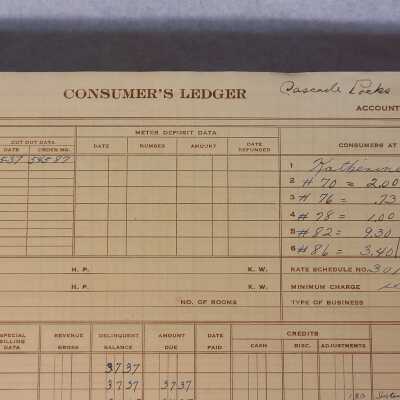 CONSUMER'S LEDGER Cascade Locks
ACCOUNT
CUT OUT DATA METER DEPOSIT DATA CONSUMERS AT
DATE ORDER NO. DATE NUMBER AMOUNT DATE REFUNDED
1 Katherine
2 #70 = 2.00
3 #76 = .73
4 #78 = 1.00
5 #82 = 9.30
6 #86 = 3.40
H. P. K. W. RATE SCHEDULE NO. 301
H. P. K. W. MINIMUM CHARGE
NO. OF ROOMS TYPE OF BUSINESS
SPECIAL BILLING DATA REVENUE GROSS DELINQUENT BALANCE AMOUNT DUE DATE PAID CREDITS
CASH DISC. ADJUSTMENTS
37 37
37 37 37 37